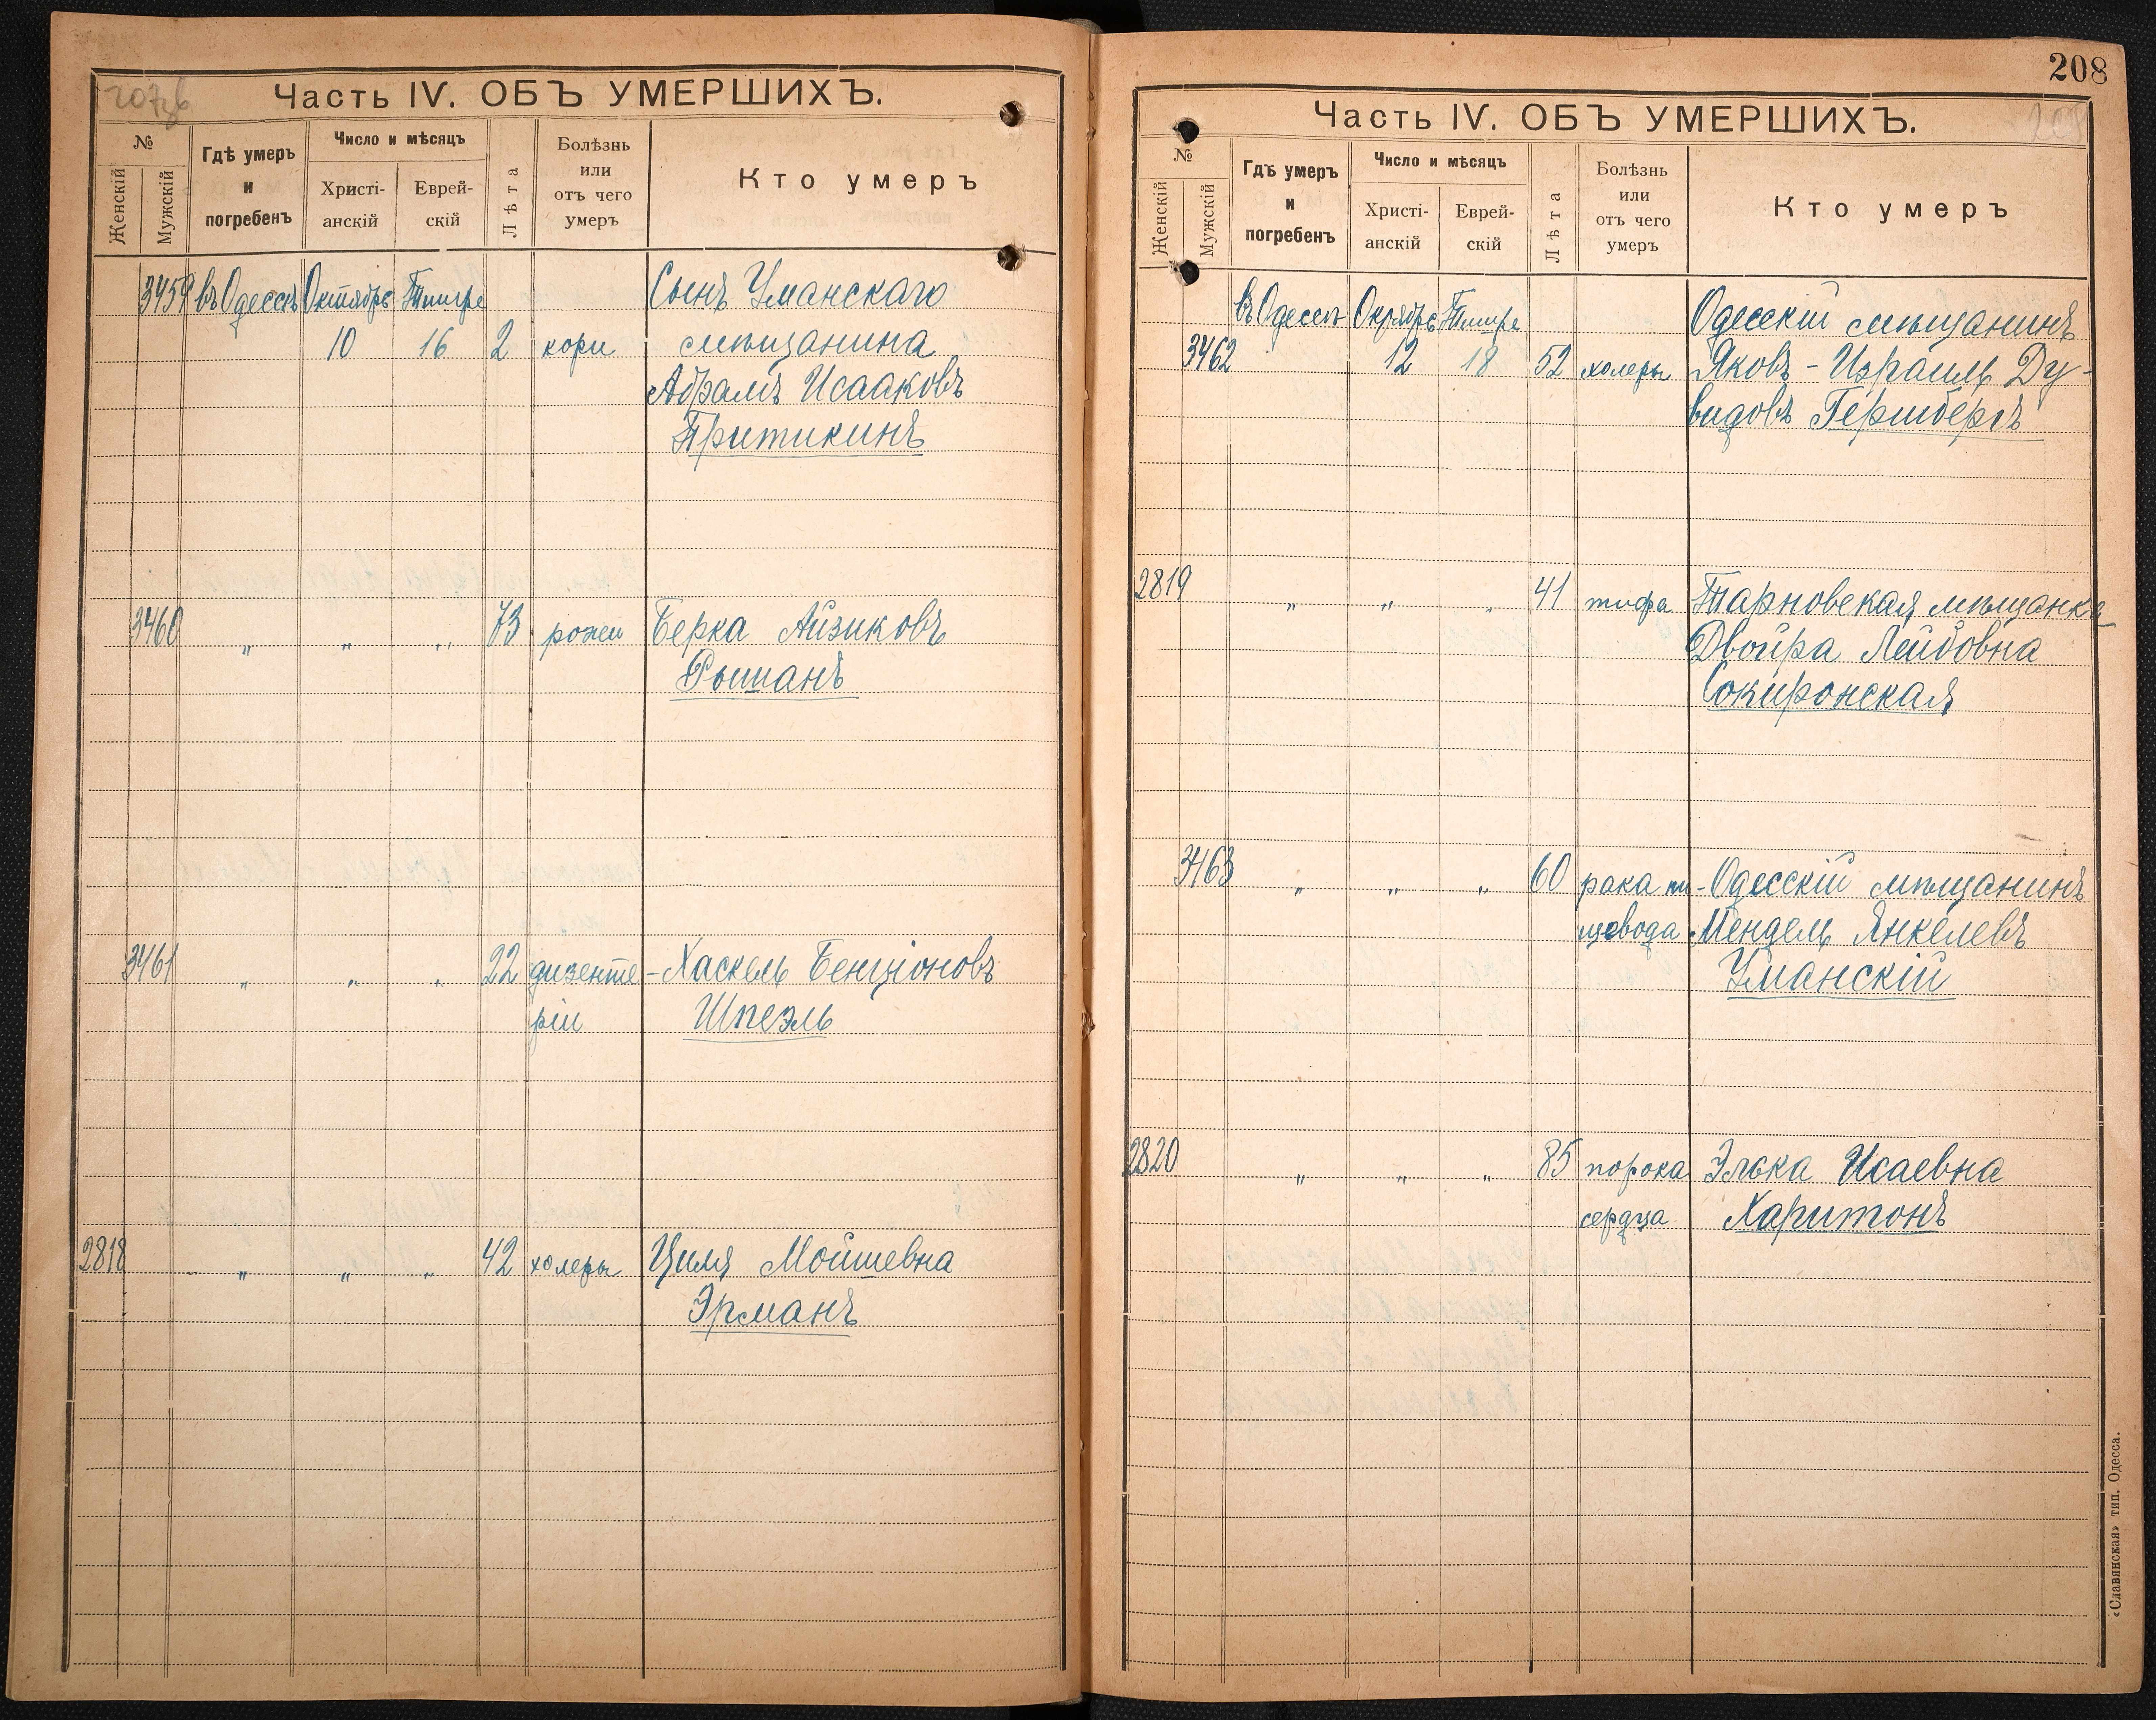 207об
Часть IV. ОБЪ УМЕРШИХЪ.
№
Женскій
Мужскій
Гдѣ умеръ
и
погребенъ
Число и мѣсяцъ
Христі-
анскій
Еврей-
скій
Лѣта
Болѣзнь
или
отъ чего
умеръ
Кто умеръ
3459 въ Одессѣ Октябрь Тишре Сынъ Уманскаго
10 16 2 кори мѣщанина
Абрамъ Исааковъ
Притикинъ
3460 „ „ „ 73 рожи Берка Айзиковъ
3461 „ „ „ 22 дизенте- Хаскель Бенціоновъ
ріи Шпеэль
2818 „ „ „ 42 холеры Циля Мойшевна
Эрманъ
208
Часть IV. ОБЪ УМЕРШИХЪ.
208
№
Женскій
Мужскій
Гдѣ умеръ
и
погребенъ
Число и мѣсяцъ
Христі-
анскій
Еврей-
скій
Лѣта
Болѣзнь
или
отъ чего
умеръ
Кто умеръ
въ Одессѣ Октябрь Тишре Одесскій мѣщанинъ
3462 12 18 52 холеры Яковъ-Израиль Ду-
видовъ Гершбергъ
2819 „ „ „ 41 тифа Тарновская мѣщанка
Двойра Лейбовна
Сокиронская
3463 „ „ „ 60 рака пи- Одесскій мѣщанинъ
щевода Мендель Янкелевъ
Уманскій
2820 „ „ „ 85 порока Элька Исаевна
сердца Харитонъ
«Славянская» тип. Одесса.